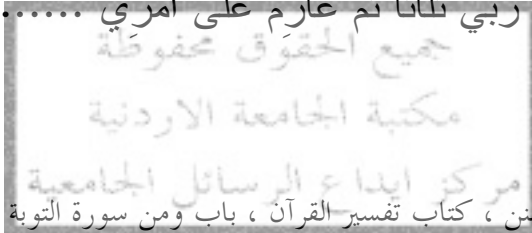 ربي ثلاثا ثم عازم على أمري ......
جميع الحقوق محفوظة
مكتبة الجامعة الاردنية
مركز ايداع الرسائل الجامعية
كتاب تفسير القرآن ، باب ومن سورة التوبة